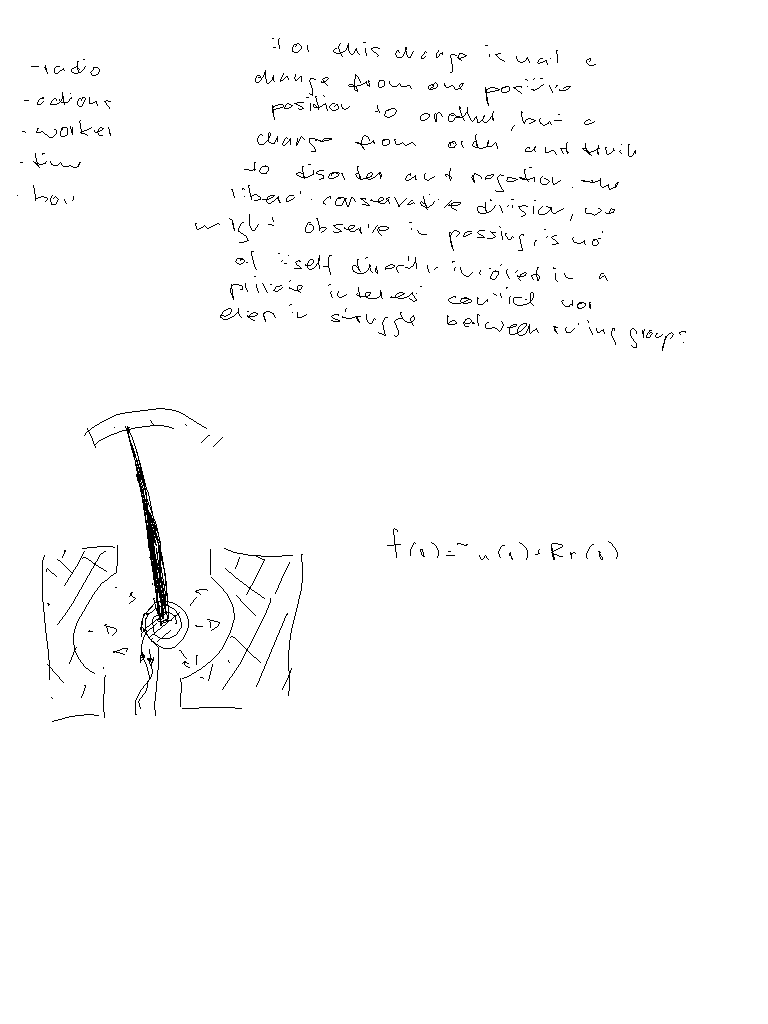 - radio
- actions
- worker
- time
For this change is not a
change from one positive
position to another, but a
change from order and truth
to disorder and negation. The
liberal-conservative division, we
might observe in passing, is not
of itself directly involved in a
private interest conflict nor
even in struggle between ruling groups